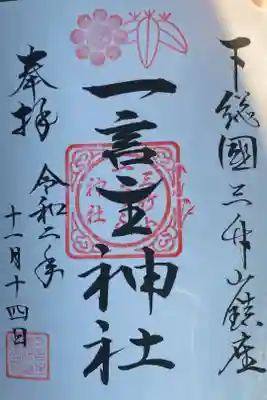 下総國三竹山鎮座
一言主神社
奉拝
令和二年
十一月十四日